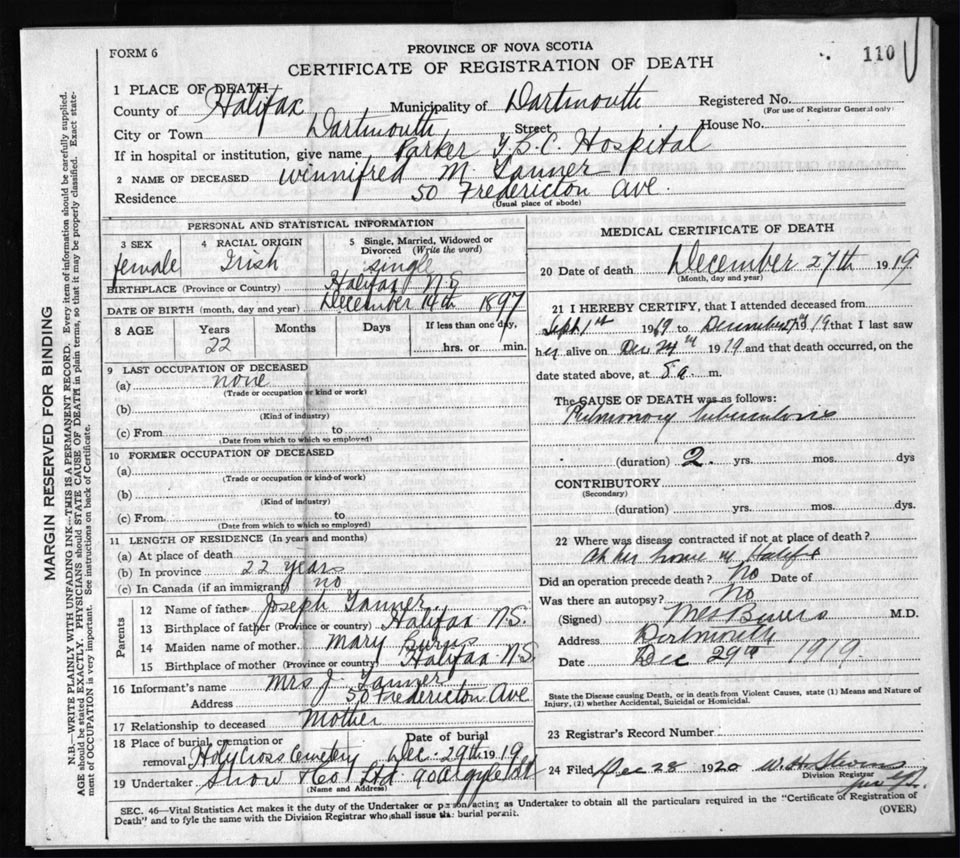 FORM 6
PROVINCE OF NOVA SCOTIA
110
CERTIFICATE OF REGISTRATION OF DEATH
1 PLACE OF DEATH
County of Halifax Municipality of Dartmouth Registered No.
(For use of Registrar General only)
City or Town Dartmouth Street House No.
If in hospital or institution, give name Parker Hospital
2 NAME OF DECEASED Winnifred M. Tanner
Residence 50 Fredericton Ave.
(Usual place of abode)
MARGIN RESERVED FOR BINDING
N.B.—WRITE PLAINLY WITH UNFADING INK—THIS IS A PERMANENT RECORD. Every item of information should be carefully supplied.
AGE should be stated EXACTLY. PHYSICIANS should STATE CAUSE OF DEATH in plain terms, so that it may be properly classified. Exact state-
ment of OCCUPATION is very important. See instructions on back of Certificate.
PERSONAL AND STATISTICAL INFORMATION
3 SEX
female
4 RACIAL ORIGIN
Irish
5 Single, Married, Widowed or
Divorced (Write the word)
single
BIRTHPLACE (Province or Country) Halifax N.S
DATE OF BIRTH (month, day and year) December 14th 1897
8 AGE Years Months Days If less than one day,
22 hrs. or min.
9 LAST OCCUPATION OF DECEASED
(a) none
(Trade or occupation or kind or work)
(b)
(Kind of industry)
(c) From to
(Date from which to which so employed)
10 FORMER OCCUPATION OF DECEASED
(a)
(Trade or occupation or kind of work)
(b)
(Kind of industry)
(c) From to
(Date from which to which so employed)
11 LENGTH OF RESIDENCE (In years and months)
(a) At place of death
(b) In province 22 years
(c) In Canada (if an immigrant) no
Parents
12 Name of father Joseph Tanner
13 Birthplace of father (Province or country) Halifax N.S.
14 Maiden name of mother Mary Burns
15 Birthplace of mother (Province or country) Halifax N.S
16 Informant's name Mrs J. Tanner
Address 50 Fredericton Ave
17 Relationship to deceased Mother
18 Place of burial, cremation or Date of burial
removal Holy Cross Cemetery Dec. 29th 1919
19 Undertaker Snow & Co. Ltd. 90 Argyle St
(Name and Address)
MEDICAL CERTIFICATE OF DEATH
20 Date of death December 27th 1919.
(Month, day and year)
21 I HEREBY CERTIFY, that I attended deceased from
Sept 1st 1919 to December 19 that I last saw
her alive on Dec 24th 1919 and that death occurred, on the
date stated above, at 5 a. m.
The CAUSE OF DEATH was as follows:
Pulmonary tuberculosis
(duration) 2. yrs. mos. dys
CONTRIBUTORY
(Secondary)
(duration) yrs. mos. dys.
22 Where was disease contracted if not at place of death?
At her home
Did an operation precede death? No Date of
Was there an autopsy? No
(Signed) M.D.
Address Dartmouth
Date Dec 29th 1919
State the Disease causing Death, or in death from Violent Causes, state (1) Means and Nature of
Injury, (2) whether Accidental, Suicidal or Homicidal.
23 Registrar's Record Number
24 Filed Dec 28 1920 W. H. Stevens
Division Registrar
SEC. 46—Vital Statistics Act makes it the duty of the Undertaker or person acting as Undertaker to obtain all the particulars required in the "Certificate of Registration of
Death" and to fyle the same with the Division Registrar who shall issue the burial permit.
(OVER)